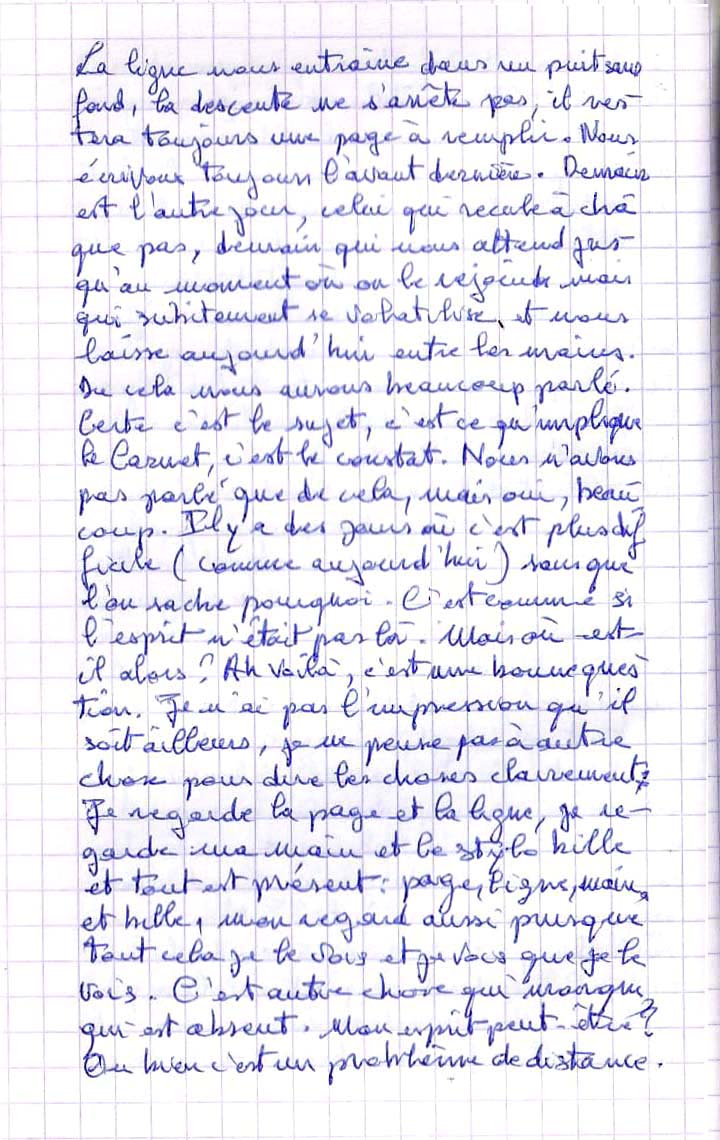 La ligne nous entraîne dans un puit sans
fond, la descente ne s'arrête pas, il res-
tera toujours une page à remplir. Nous
écrivons toujours l'avant dernière. Demain
est l'autre jour, celui qui recule à cha
que pas, demain qui nous attend jus-
qu'au moment où on le rejoint mais
qui subitement se volatilise, et nous
laisse aujourd'hui entre les mains.
De cela nous aurons beaucoup parlé.
Certe c'est le sujet, c'est ce qu'implique
le Carnet, c'est le constat. Nous n'avons
pas parlé que de cela, mais oui, beau
coup. Il y a des jours où c'est plus dif
ficile (comme aujourd'hui) sans que
l'on sache pourquoi. C'est comme si
l'esprit n'était pas là. Mais où est-
il alors? Ah voilà, c'est une bonne ques
tion. Je n'ai pas l'impression qu'il
soit ailleurs, je ne pense pas à autre
chose pour dire les choses clairement.
Je regarde la page et la ligne, je re-
garde ma main et le stylo bille
et tout est présent: page, ligne, main,
et bille, mon regard aussi puisque
tout cela je le vois et je vois que je le
vois. C'est autre chose qui manque,
qui est absent. Mon esprit peut-être?
Ou bien c'est un problème de distance.